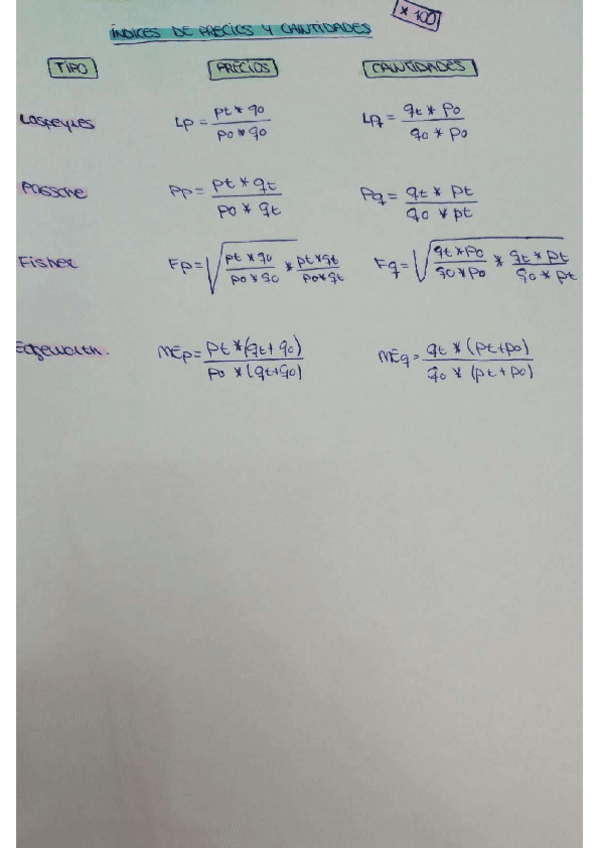 * 100
ÍNDICES DE PRECIOS Y CANTIDADES
TIPO PRECIOS CANTIDADES
Laspeyres Lp = pt * q0 / p0 * q0 Lq = qt * p0 / q0 * p0
Passche Pp = pt * qt / p0 * qt Pq = qt * pt / q0 * pt
Fisher Fp = √ pt * q0 / p0 * q0 * pt * qt / p0 * qt Fq = √ qt * p0 / q0 * p0 * qt * pt / q0 * pt
Edgeworth. MEp = pt * (qt + q0) / p0 * (qt + q0) MEq = qt * (pt + p0) / q0 * (pt + p0)